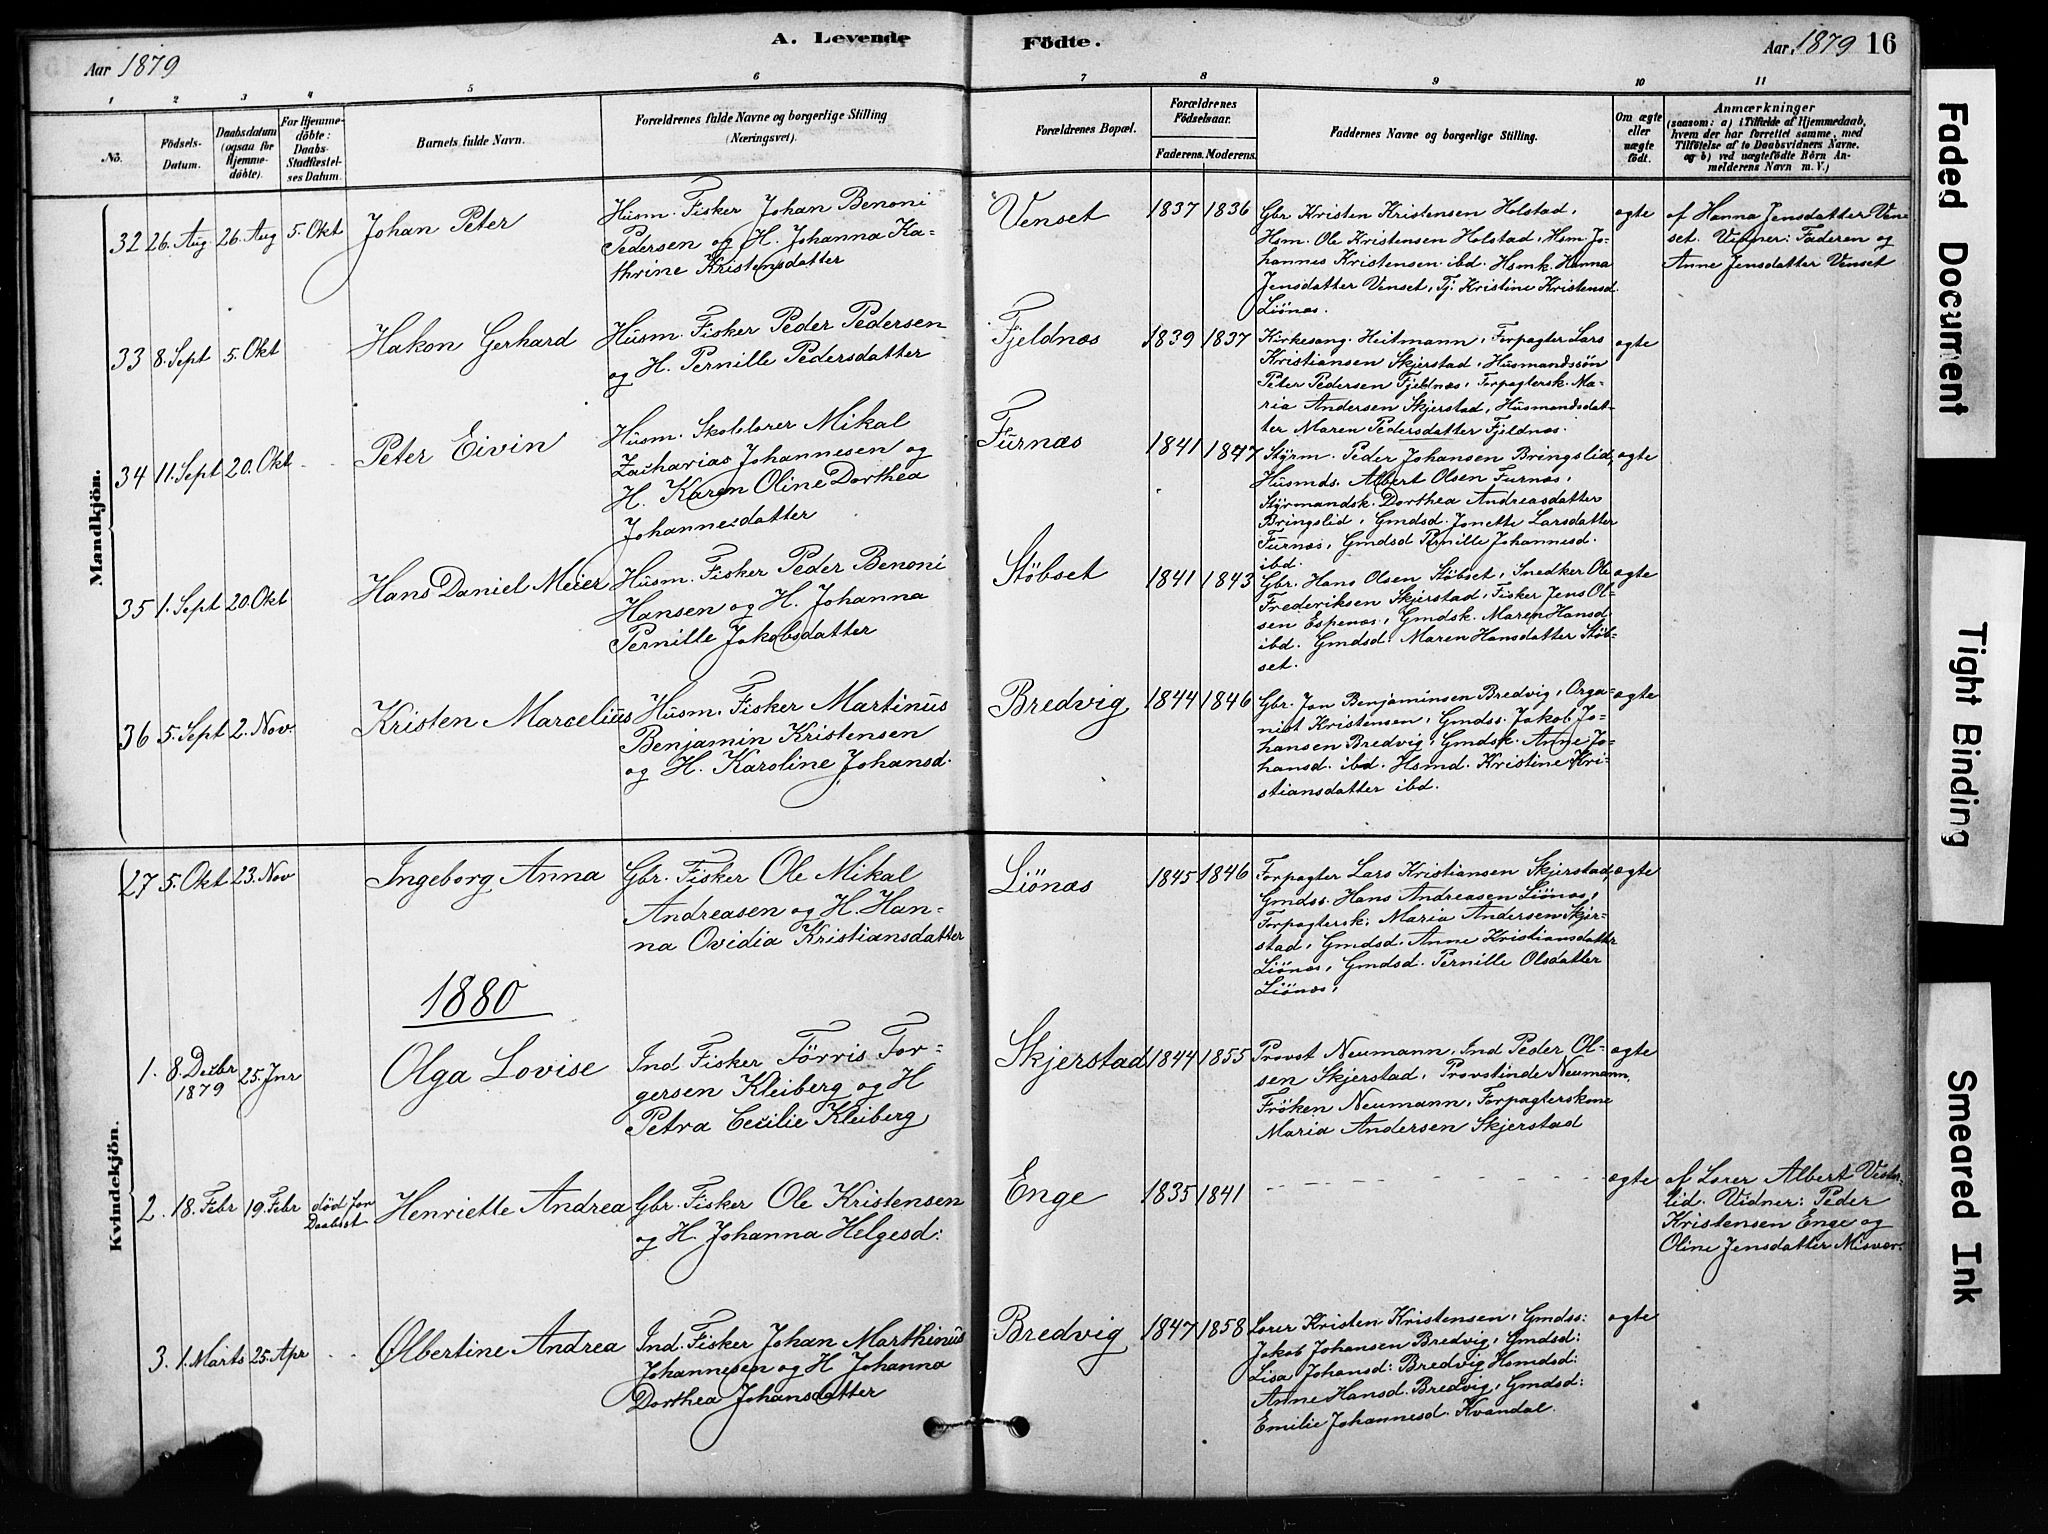 A. Levende Födte.
Aar 1879
Aar 1879 16
1 2 3 4 5 6 7 8 9 10 11
No.
Födsels-
Datum.
Daabsdatum
(ogsaa for
Hjemme-
döbte).
For Hjemme-
döbte:
Daabs-
Stadfæstel-
ses Datum.
Barnets fulde Navn.
Forældrenes fulde Navne og borgerlige Stilling
(Næringsvei).
Forældrenes Bopæl.
Forældrenes
Födselsaar.
Faderens. Moderens.
Faddernes Navne og borgerlige Stilling.
Om ægte
eller
uægte
födt.
Anmærkninger
(saasom: a) i Tilfælde af Hjemmedaab,
hvem der har forrettet samme, med
Tilföielse af to Daabsvidners Navne.
og b) ved uægtefödte Börn An-
melderens Navn m. V.)
Mandkjön.
32 26. Aug 26. Aug 5. Okt Johan Peter
Husm. Fisker Johan Benoni
Pedersen og H. Johanna Ka-
thrine Kristensdatter
Venset 1837 1836
Gbr Kristen Kristensen Holstad,
Hsm. Ole Kristensen Holstad, Hsm. Jo-
hannes Kristensen ibd. Hsmk. Hanna
Jensdatter Venset, Tj. Kristine Kristensd.
Liönæs.
ægte
af Hanna Jensdatter Ven-
set. Vidner: Faderen og
Anne Jensdatter Venset
33 8. Sept 5. Okt Hakon Gerhard
Husm. Fisker Peder Pedersen
og H. Pernille Pedersdatter
Fjeldnæs 1839 1837
Kirkesang. Heitmann, Forpagter Lars
Kristiansen Skjerstad, Husmandssön
Peter Pedersen Fjeldnæs, Forpagtersk. Ma-
ria Andersen Skjerstad, Husmandsdat-
ter Maren Pedersdatter Fjeldnæs.
ægte
34 11. Sept 20. Okt Peter Eivin
Husm. Skolelærer Mikal
Zacharias Johannesen og
H. Karen Oline Dorthea
Johannesdatter
Furnæs 1841 1847
Styrm. Peder Johansen Bringslid,
Husmds. Albert Olsen Furnæs,
Styrmandsk. Dorthea Andreasdatter
Bringslid, Gmdsd. Jonette Larsdatter
Furnæs, Gmdsd Pernille Johannesd.
ibd.
ægte
35 1. Sept 20. Okt Hans Daniel Meier
Husm. Fisker Peder Benoni
Hansen og H. Johanna
Pernille Jakobsdatter
Stöbset 1841 1843
Gbr. Hans Olsen Stöbset, Snedker Ole
Frederiksen Skjerstad, Fisker Jens Ol-
sen Espenæs, Gmdsk. Maren Hansd
ibd. Gmdsd. Maren Hansdatter Stöb-
set.
ægte
36 5. Sept 2. Nov Kristen Marcelius
Husm. Fisker Martinus
Benjamin Kristensen
og H. Karoline Johansd.
Bredvig 1844 1846
Gbr. Jon Benjaminsen Bredvig, Orga-
nist Kristensen, Gmdss. Jakob Jo-
hansen Bredvig, Gmdsk. Anne Jo-
hansd. ibd. Hsmd. Kristine Kri-
stiansdatter ibd.
ægte
Kvindekjön.
27 5. Okt 23. Nov Ingeborg Anna
Gbr. Fisker Ole Mikal
Andreasen og H. Han-
na Ovidia Kristiansdatter
Liönæs 1845 1846
Forpagter Lars Kristiansen Skjerstad,
Gmdss. Hans Andreasen Liönæs,
Forpagtersk. Maria Andersen Skjer-
stad, Gmdsd. Anne Kristiansdatter
Liönæs, Gmdsd. Pernille Olsdatter
Liönæs,
ægte
1880
1. 8. Decbr
1879
25. Jnr
Olga Lovise
Ind Fisker Törris Tor-
gersen Kleiberg og H
Petra Cecilie Kleiberg
Skjerstad 1844 1855
Provst Neumann, Ind Peder Ol-
sen Skjerstad, Provstinde Neumann,
Fröken Neumann, Forpagterskone
Maria Andersen Skjerstad
ægte
2. 18. Febr 19. Febr död for
Daabst
Henriette Andrea
Gbr. Fisker Ole Kristensen
og H. Johanna Helgesd:
Enge 1835 1841
ægte
af Lærer Albert Vester-
lid. Vidner: Peder
Kristensen Enge og
Oline Jensdatter Misvær.
3. 1. Marts 25. Apr Olbertine Andrea
Ind. Fisker Johan Marthinus
Johannesen og H Johanna
Dorthea Johansdatter
Bredvig 1847 1858
Lærer Kristen Kristensen, Gmdss:
Jakob Johansen Bredvig, Gmdsd:
Lisa Johansd: Bredvig Hsmdsd:
Anne Hansd. Bredvig, Gmdsd:
Emilie Johannesd. Kvændal.
ægte
Faded Document
Tight Binding
Smeared Ink